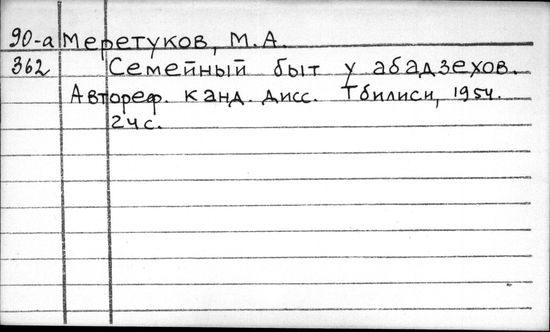 90-а Меретуков, М.А.
362 Семейный быт у абадзехов.
Автореф. канд. дисс. Тбилиси, 1954.
24с.